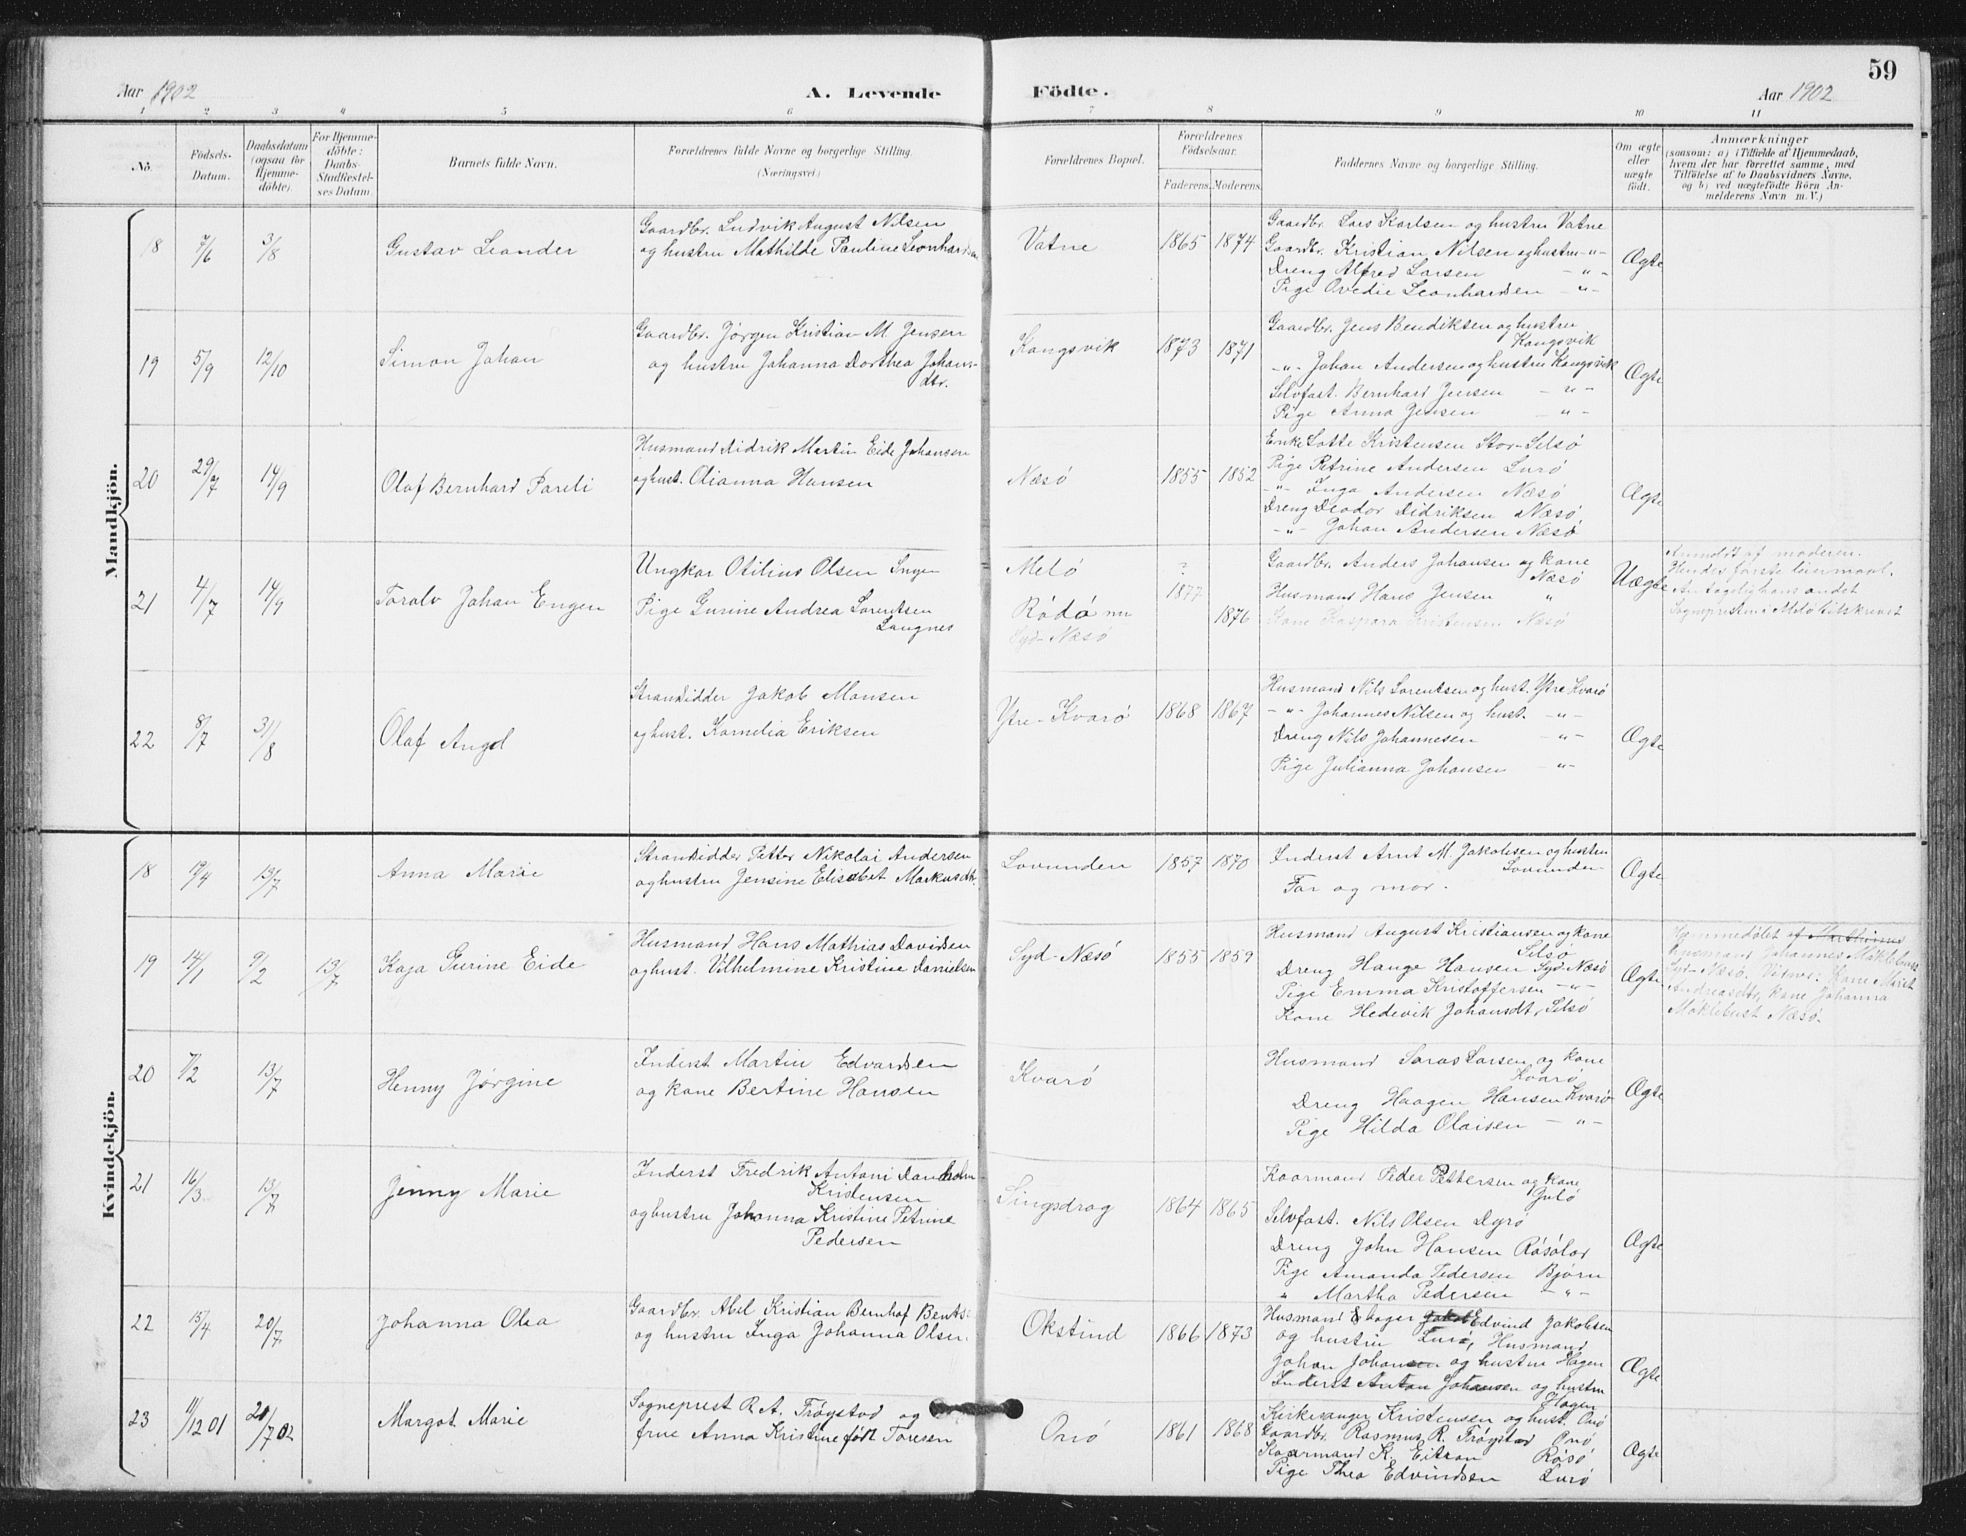 59
Aar 1902
A. Levende
Födte.
Aar 1902
1 2 3 4 5 6 7 8 9 10 11
No.
Födsels-Datum.
Daabsdatum (ogsaa for Hjemmedöbte).
For Hjemmedöbte: Daabs-Stadfæstelses Datum.
Barnets fulde Navn.
Forældrenes fulde Navne og borgerlige Stilling. (Næringsvei.)
Forældrenes Bopæl.
Forældrenes Födselsaar.
Faderens. Moderens.
Faddernes Navne og borgerlige Stilling.
Om ægte eller uægte födt.
Anmærkninger
(saasom: a) i Tilfælde af Hjemmedaab, hvem der har forrettet samme, med Tilföielse af to Daabsvidners Navne, og b) ved uægtefödte Börn Anmelderens Navn m.V.)
Mandkjön.
18 7/6 3/8 Gustav Leander
Gaardbr. Ludvik August Nilsen
og hustru Mathilde Pauline Leonhardsen
Vatne 1865 1874
Gaardbr. Lars Karlsen og hustru Vatne
Gaardbr. Kristian Nilsen og hustru -"-
Dreng Alfred Larsen -"-
Pige Ovedie Leonhardsen -"-
Ægte
19 5/9 12/10 Simon Johan
Gaardbr. Jørgen Kristian M. Jensen
og hustru Johanna Dorthea Johans-
dtr.
Kangsvik 1873 1871
Gaardbr. Jens Bendiksen og hustru
Kangsvik
-"- Johan Andersen og hustru Kangsvik
Selvfost. Bernhard Jensen -"-
Pige Anna Jensen -"-
Ægte
20 29/7 14/9 Olaf Bernhard Pareli
Husmand Didrik Martin Eide Johansen
og hust. Olianna Hansen
Næsö 1855 1852
Enke Lotte Kristensen Stor-Selsö
Pige Petrine Andersen Lurö
-"- Inga Andersen Næsö
Dreng Deodor Didriksen Næsö
-"- Johan Andersen Næsö
Ægte
21 4/7 14/9 Toralv Johan Engen
Ungkar Otilius Olsen
Pige Gurine Andrea Lorentsen
Langnes
Melö
Rödö nu
Syd-Næsö
? 1877 1876
Gaardbr. Anders Johansen og kone
Næsö
Husmand Hans Jensen "
Kone Kaspara Kristensen Næsö
Uægte
Anmeldt af moderen.
Hendes første leiermaal.
22 8/7 31/8 Olaf Angel
Strandsidder Jakob Monsen
og hust. Kornelia Eriksen
Ytre-Kvarö 1868 1867
Husmand Nils Lorentsen og hust. Ytre Kvarö
-"- Johannes Nilsen og hust. -"-
Dreng Nils Johannesen -"-
Pige Julianna Johansen -"-
Ægte
Kvindekjön.
18 19/4 13/7 Anna Marie
Strandsidder Petter Nikolai Andersen
og hustru Jensine Elisabet Markusdtr.
Lovunden 1857 1870
Inderst Arnt M. Jakobsen og hustru
Lovunden
Far og mor.
Ægte
19 14/1 9/2 13/7 Kaja Gurine Eide
Husmand Hans Mathias Davidsen
og hust. Vilhelmine Kristine Danielsen
Syd-Næsö 1855 1859
Husmand August Kristiansen og kone
Selsö
Dreng Hange Hansen Syd-Næsö
Pige Emma Kristoffersen -"-
Kone Hedevik Johansdt. Selsö
Ægte
Hjemmedøbt af
husmand Johannes Möklebust
Syd-Næsö. Vidner: Kone Marit
Andreasdtr, kone Johanna
Möklebust Næsö.
20 7/2 13/7 Henny Jørgine
Inderst Martin Edvardsen
og kone Bertine Hansen
Kvarö
Husmand Saras Larsen og kone
Kvarö
Dreng Haagen Hansen Kvarö
Pige Hilda Olaisen -"-
Ægte
21 16/3 13/7 Jenny Marie
Inderst Fredrik Antoni Danholm
Kristensen
og hustru Johanna Kristine Petrine
Pedersen
Selvfost. Nils Olsen Dyrö
Singsdrag 1864 1865
Kaarmand Peder Pettersen og kone
Dreng John Hansen
Pige Amanda Pedersen Bjørn
" Martha Pedersen -"-
Ægte
22 15/4 20/7 Johanna Olea
Gaardbr. Abel Kristian Bernhof Bents.
og hustru Inga Johanna Olsen
Okstind 1866 1873
Husmand Edvind Jakobsen
og hustru Lurö, Husmand
Johan Johansen og hustru Hagen
Inderst Anton Johansen og hustru
Hagen
Ægte
23 11/12 01 20/7 02 Margot Marie
Sogneprest R. A. Trøystad og
frue Anna Kristine født Toresen
Onö 1861 1868
Kirkesanger Kristensen og hust. Onö
Gaardbr. Rasmus R. Trøystad Onö
Kaarmand K. Eitran Rösö
Pige Thea Edvindsen Lurö
Ægte